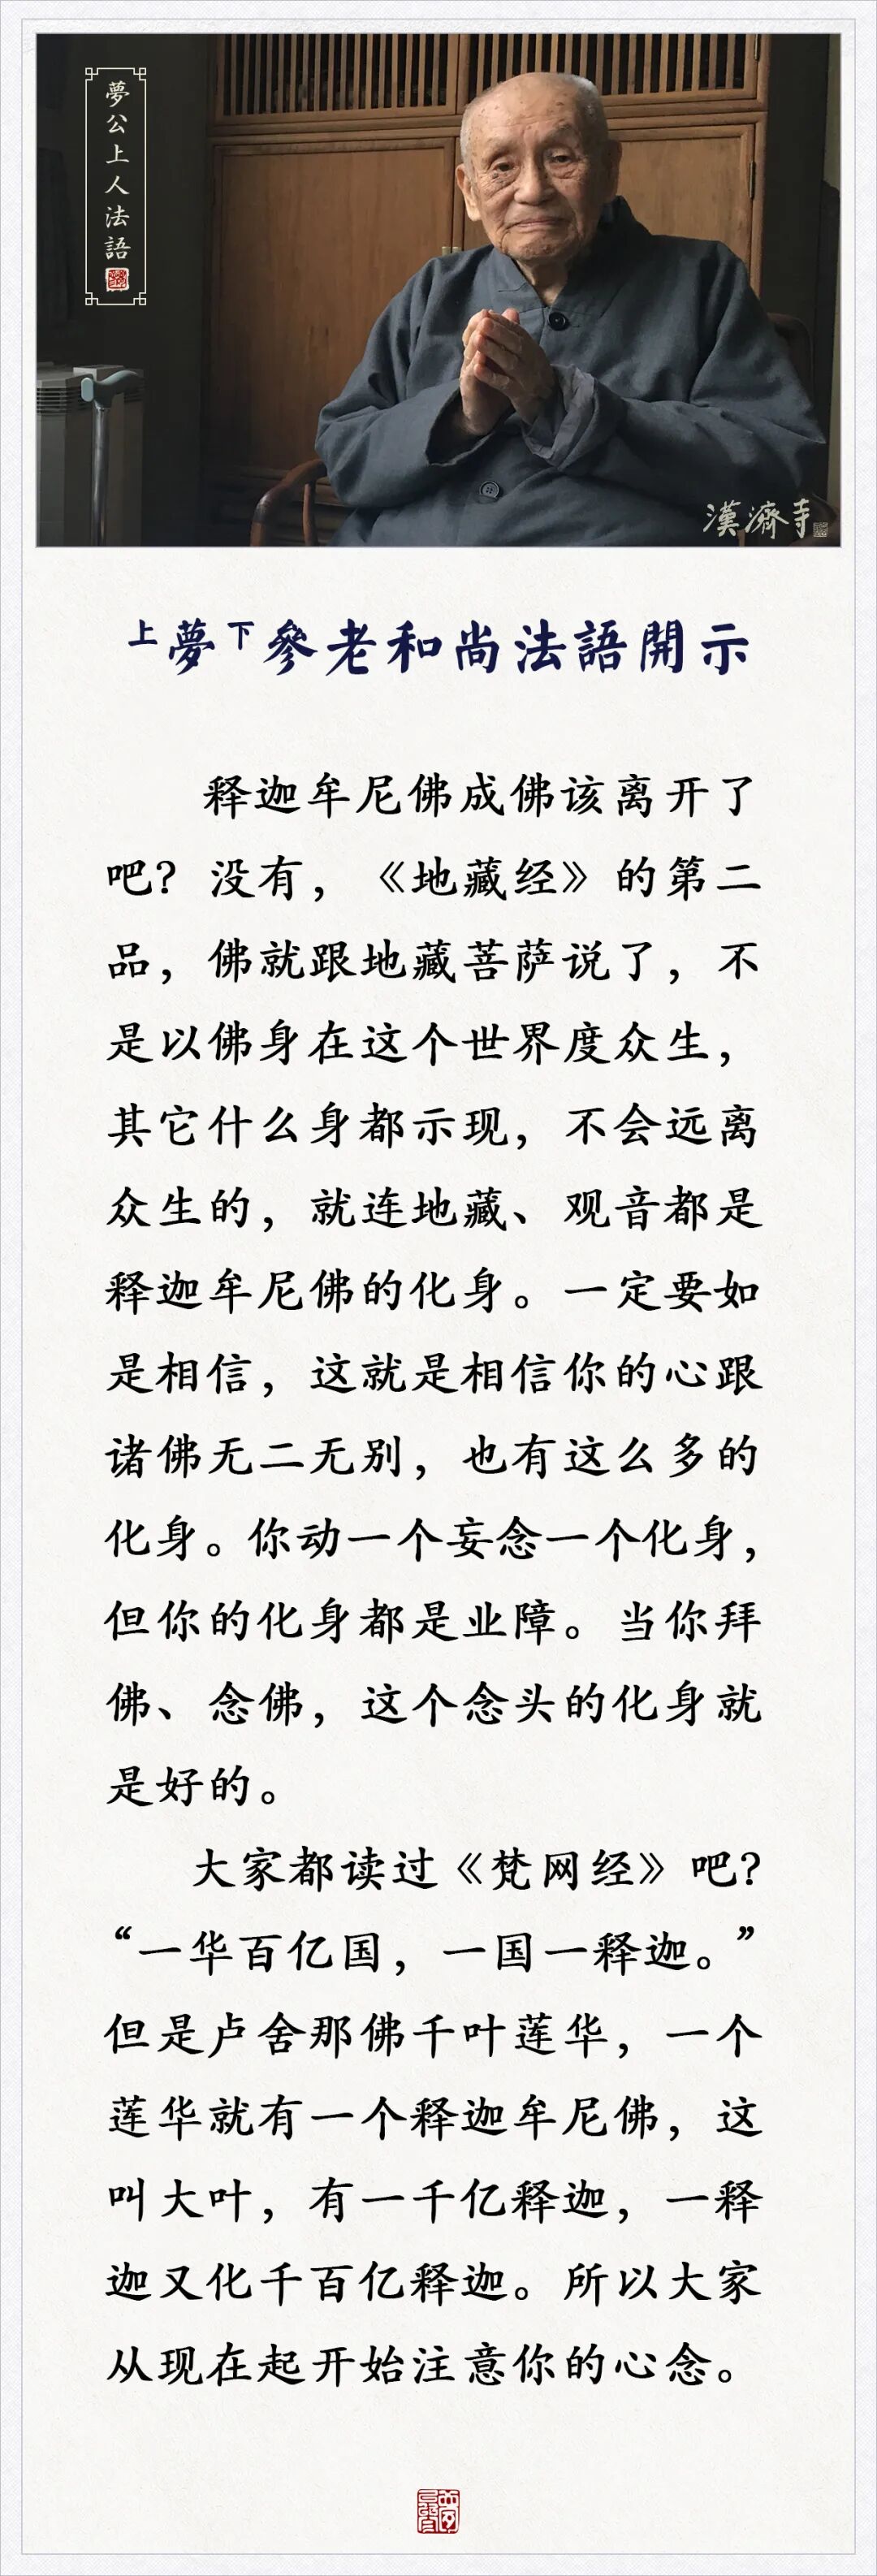 夢公上人法語
漢濟寺
上夢下參老和尚法語開示
释迦牟尼佛成佛该离开了
吧？没有，《地藏经》的第二
品，佛就跟地藏菩萨说了，不
是以佛身在这个世界度众生，
其它什么身都示现，不会远离
众生的，就连地藏、观音都是
释迦牟尼佛的化身。一定要如
是相信，这就是相信你的心跟
诸佛无二无别，也有这么多的
化身。你动一个妄念一个化身，
但你的化身都是业障。当你拜
佛、念佛，这个念头的化身就
是好的。
大家都读过《梵网经》吧？
“一华百亿国，一国一释迦。”
但是卢舍那佛千叶莲华，一个
莲华就有一个释迦牟尼佛，这
叫大叶，有一千亿释迦，一释
迦又化千百亿释迦。所以大家
从现在起开始注意你的心念。